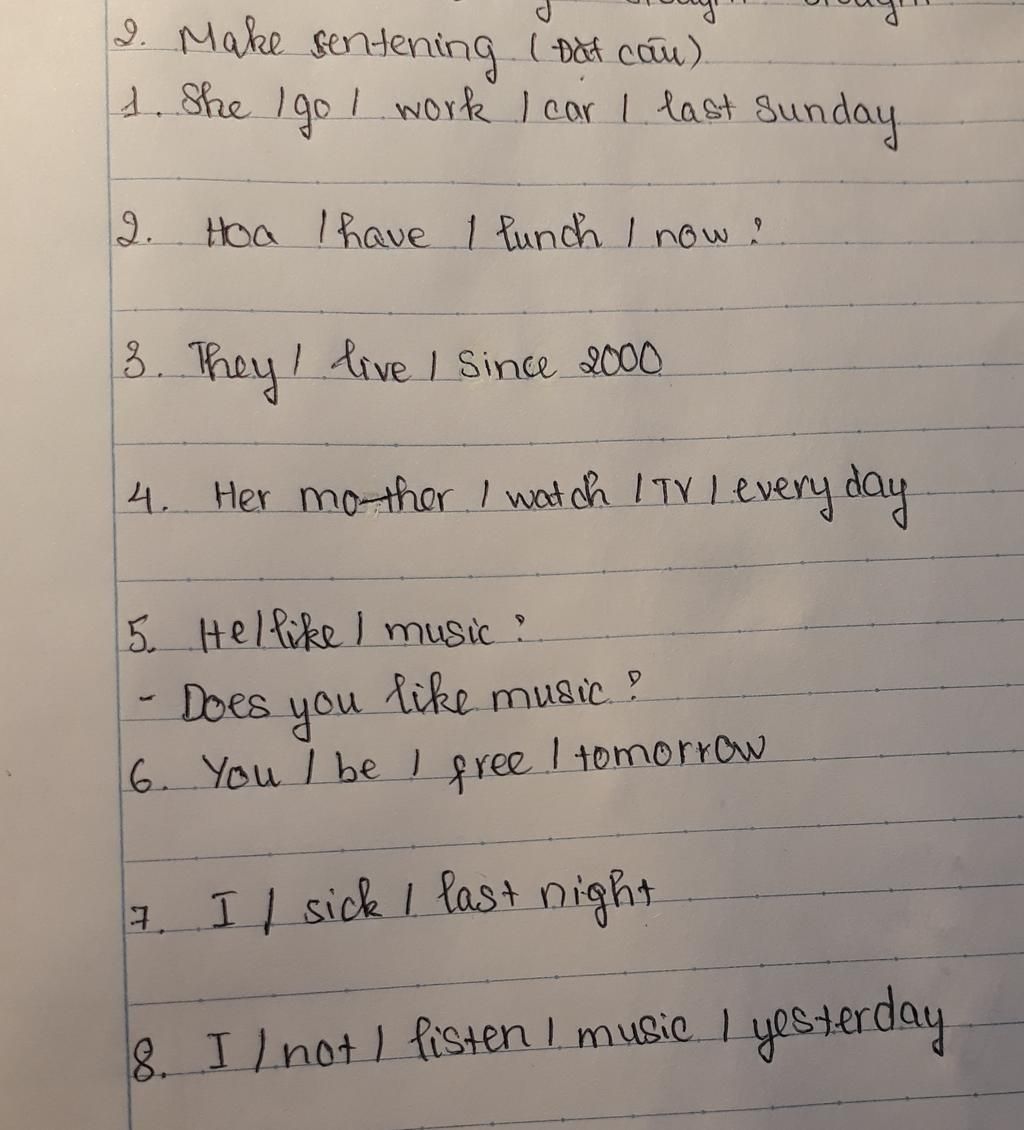 2. Make sentening (Đặt câu)
1. She / go / work / car / last Sunday
2. Hoa / have / lunch / now ?
3. They / live / Since 2000
4. Her mother / watch / TV / every day
5. He / like / music ?
- Does you like music ?
6. You / be / free / tomorrow
7. I / sick / last night
8. I / not / listen / music / yesterday